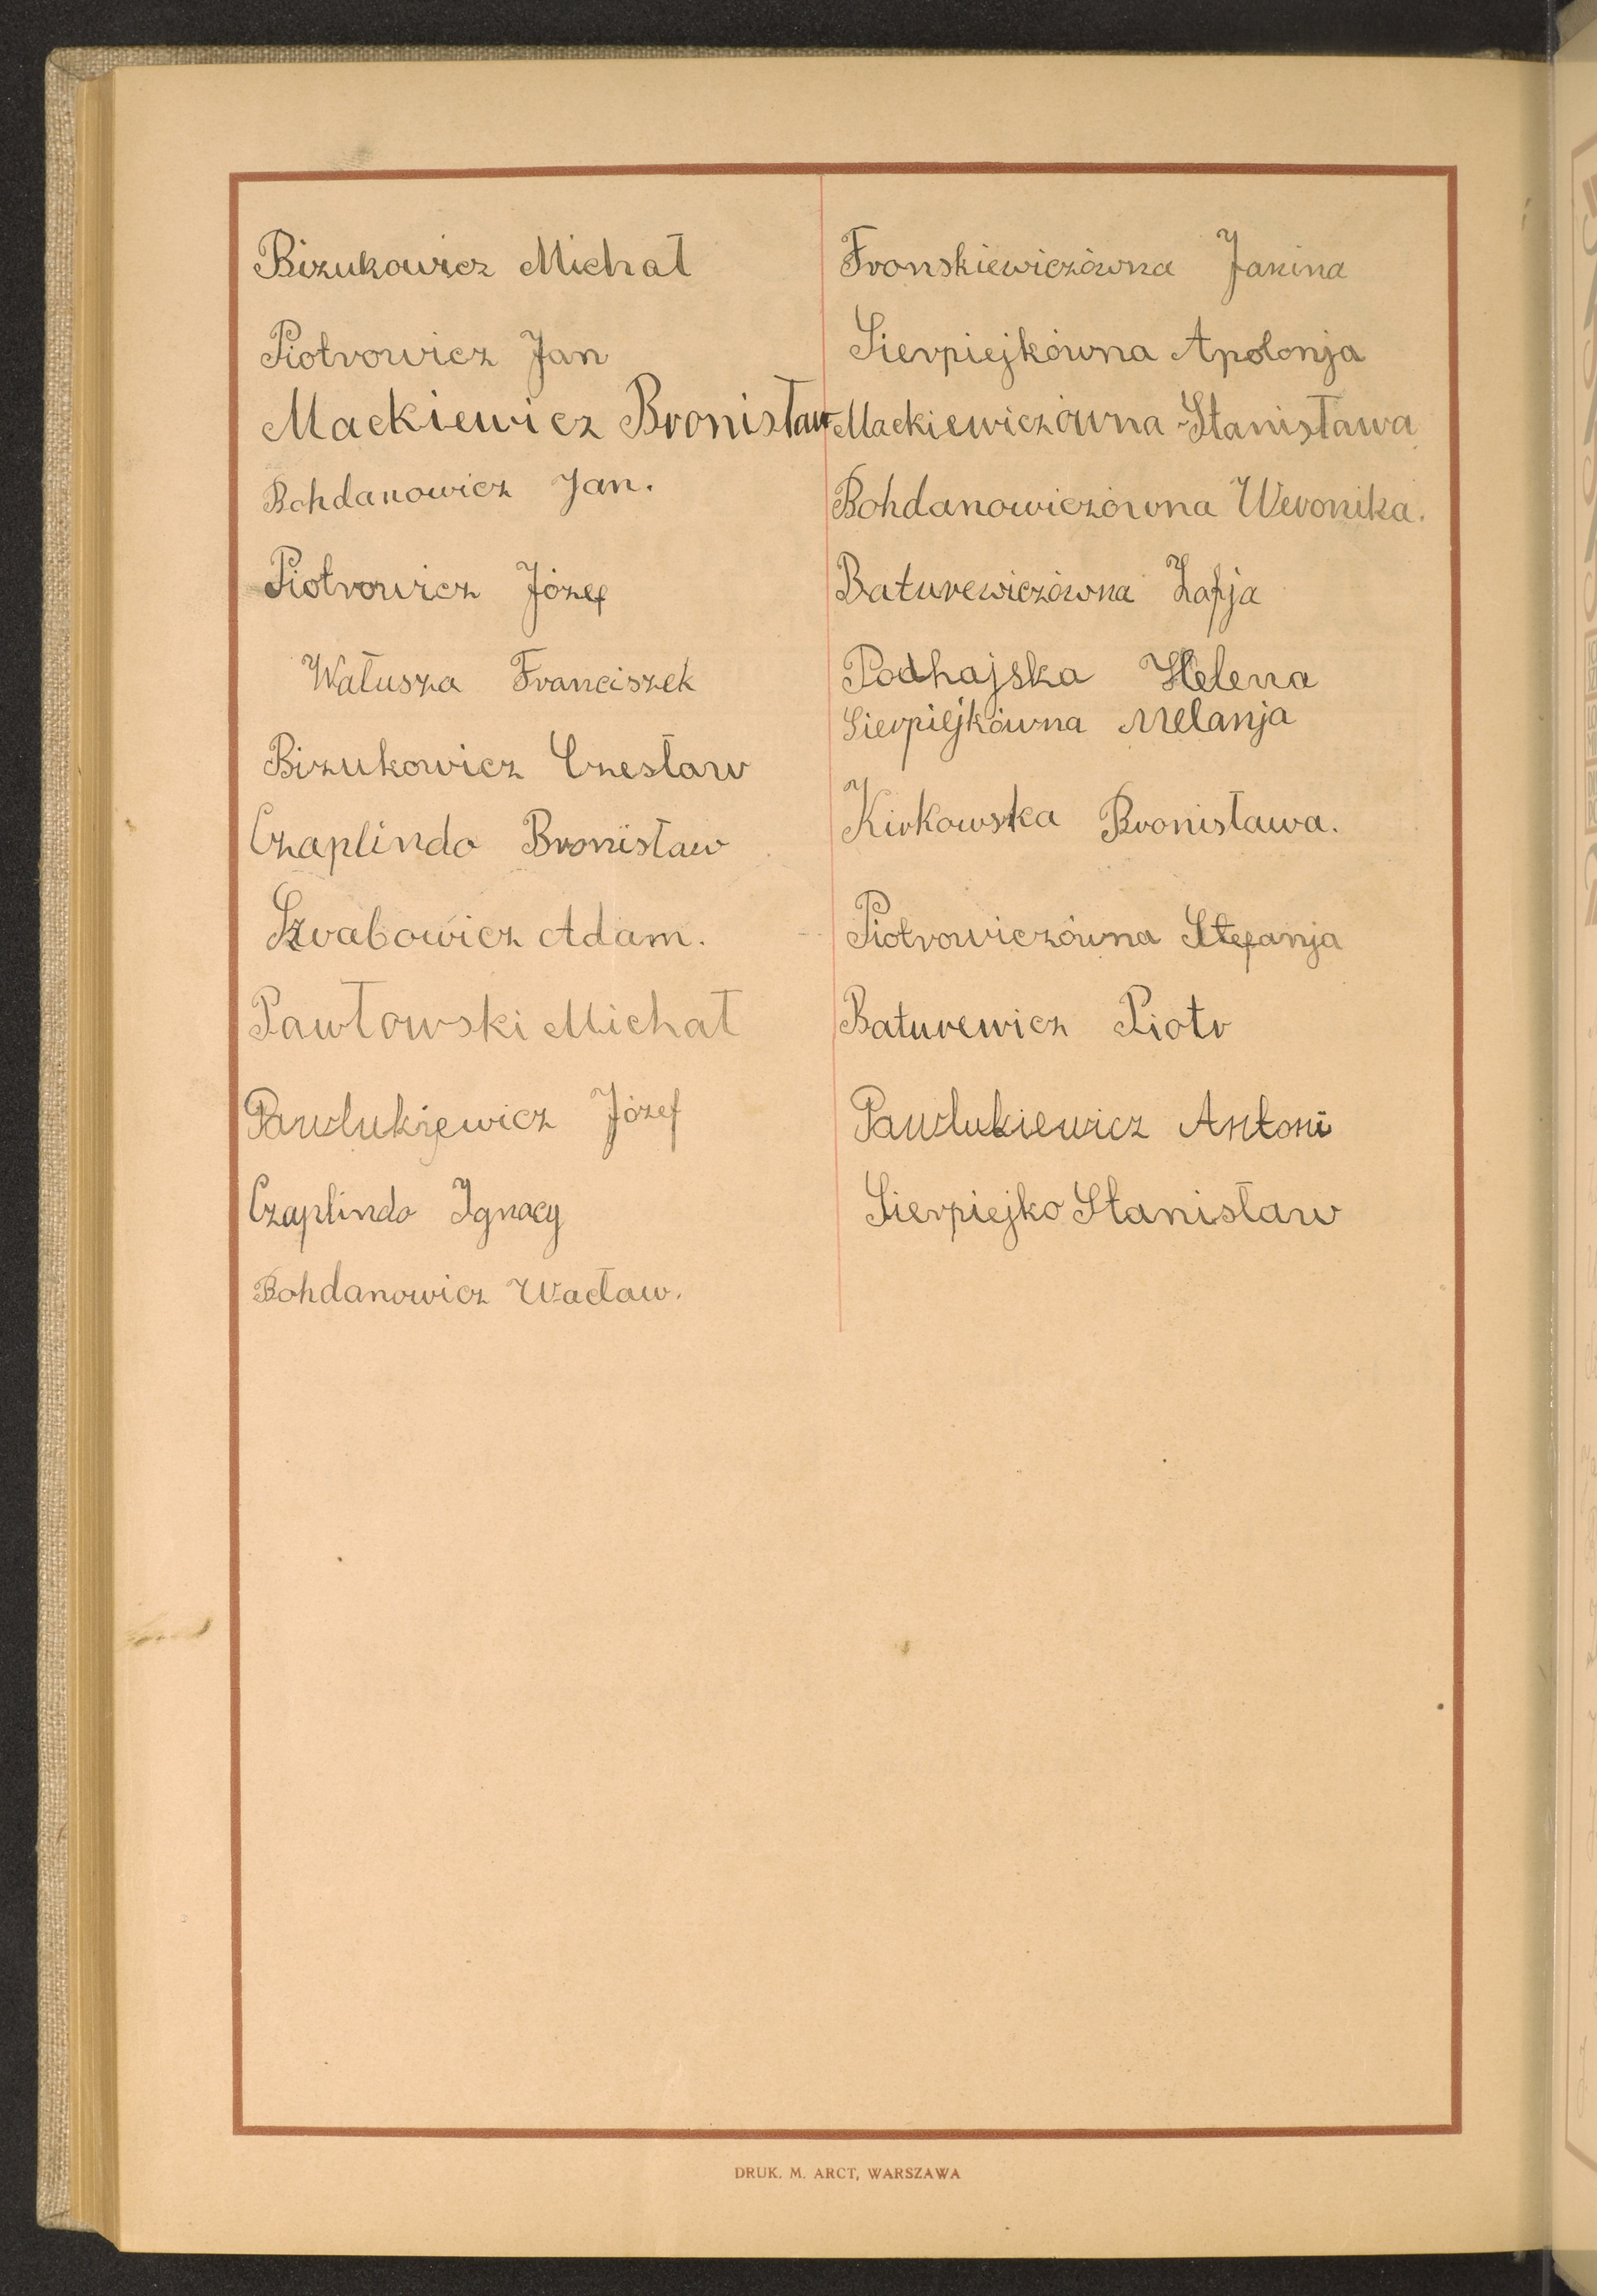 Bizukowicz Michał
Piotrowicz Jan
Mackiewicz Bronisław
Bohdanowicz Jan.
Piotrowicz Józef
Wałusza Franciszek
Bizukowicz Czesław
Czaplindo Bronisław
Szrabowicz Adam.
Pawłowski Michał
Pawlukiewicz Józef
Czaplindo Ignacy
Bohdanowicz Wacław.
Fronskiewiczówna Janina
Sierpiejkówna Apolonja
Mackiewiczówna Stanisława
Bohdanowiczówna Weronika.
Baturewiczówna Zofja
Podhajska Helena
Sierpiejkówna Melanja
Kirkowska Bronisława.
Piotrowiczówna Stefanja
Baturewicz Piotr
Pawlukiewicz Antoni
Sierpiejko Stanisław
DRUK. M. ARCT, WARSZAWA